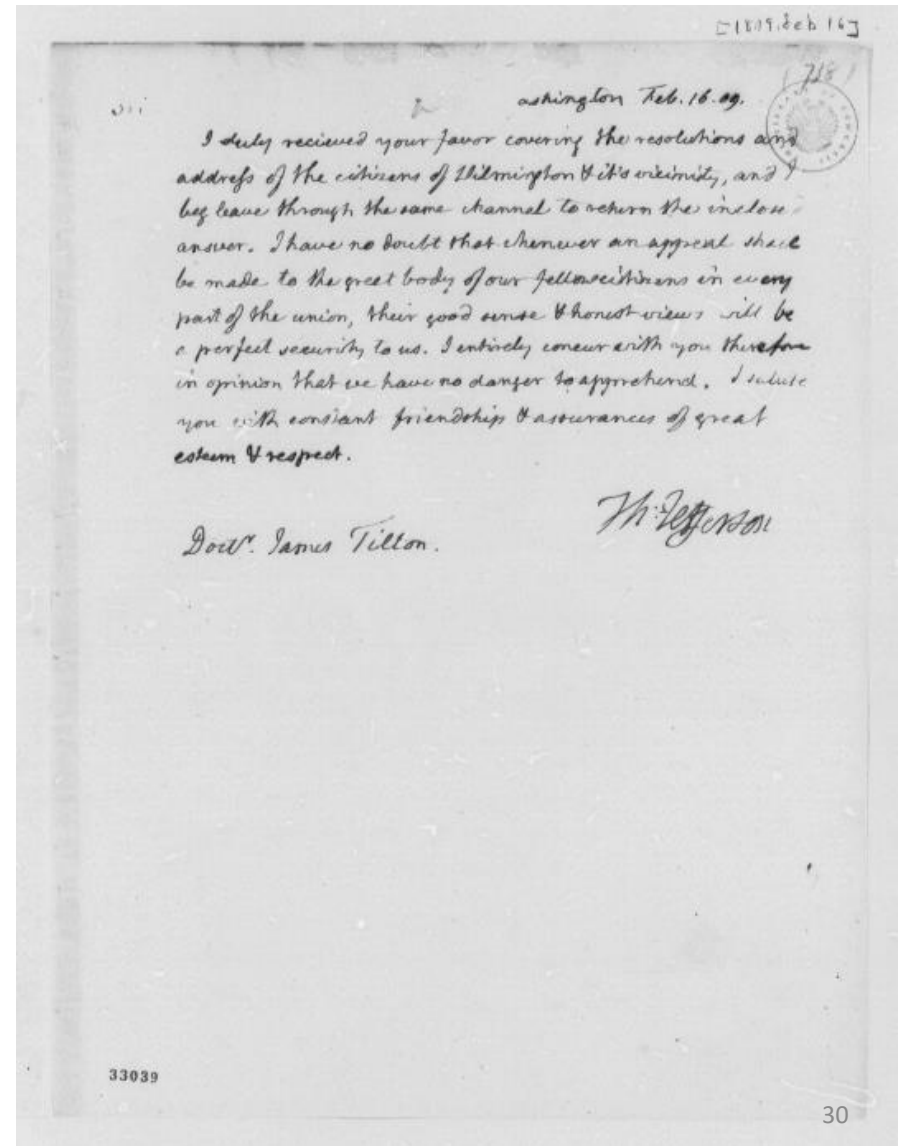 [1809. Feb 16]
718
ashington Feb. 16. 09.
I duly recieved your favor covering the resolutions and
address of the citizens of Wilmington & it's vicinity, and I
beg leave through the same channel to return the inclose
answer. I have no doubt that whenever an appeal shall
be made to the great body of our fellow citizens in every
part of the union, their good sense & honest views will be
a perfect security to us. I entirely concur with you therefore
in opinion that we have no danger to apprehend. I salute
you with constant friendship & assurances of great
esteem & respect.
Th: Jefferson
Doctr. James Tilton.
33039
30